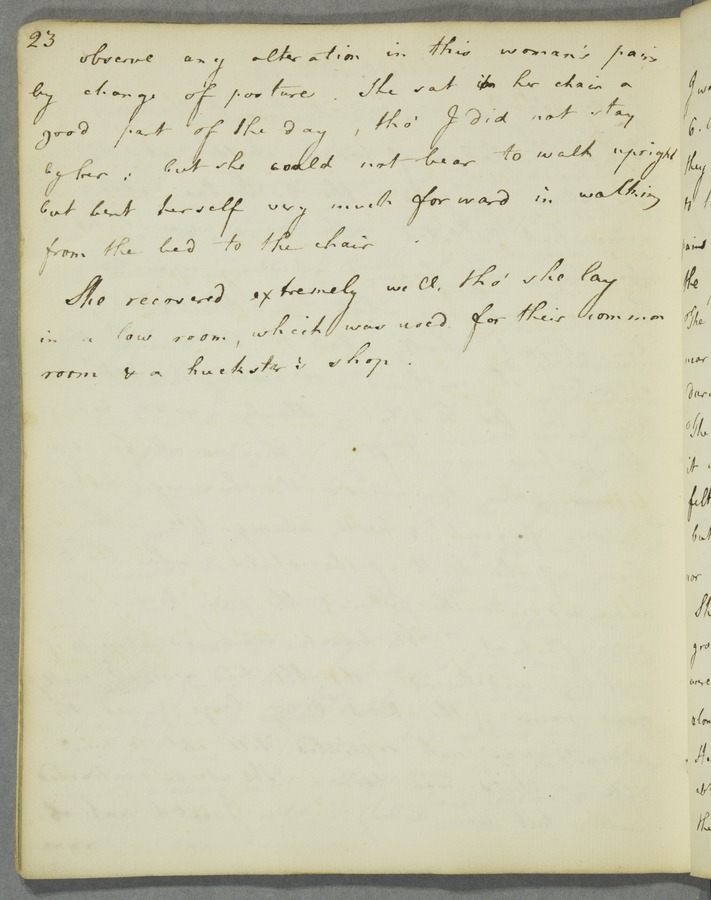 23
observe any alteration in this woman's pain
by change of posture. She sat in her chair a
good part of the day, tho' I did not stay
by her; but she could not bear to walk upright
but bent herself very much forward in walking
from the bed to the chair.
She recovered extremely well, tho' she lay
in a low room, which was used for their common
room & a huckster's shop.